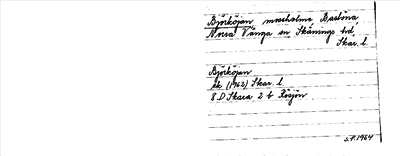 Björköjan mosholme Bastöna,
Norra Vånga sn, Skånings hd,
Skar. l.
Björköjan
ek (1962) Skar. l.
8 D Skara 2 b Rösjön
S.F. 1964